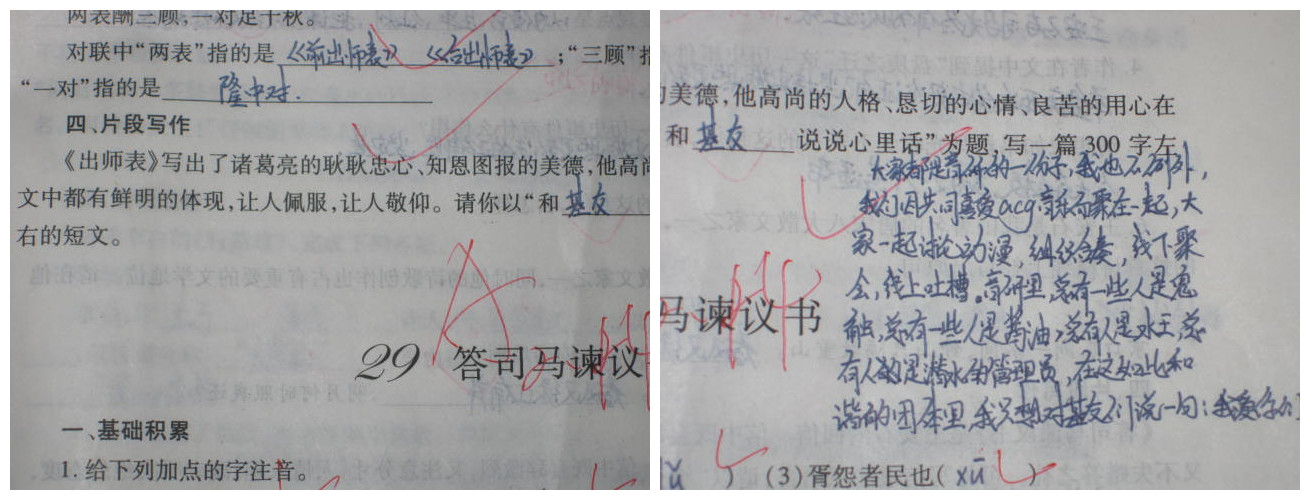 两表酬三顾,一对足千秋。
对联中“两表”指的是《前出师表》 《后出师表》;“三顾”指
“一对”指的是 隆中对.
四、片段写作
《出师表》写出了诸葛亮的耿耿忠心、知恩图报的美德,他高尚
文中都有鲜明的体现,让人佩服,让人敬仰。请你以“和 基友
右的短文。
29 答司马谏议
一、基础积累
1.给下列加点的字注音。
的美德,他高尚的人格、恳切的心情、良苦的用心在
和 基友 说说心里话”为题,写一篇300字左
大家都是 的一份子,我也不例外,
我们因共同喜爱acg音乐而聚在一起,大
家一起讨论动漫,组织合奏,线下聚
会,线上吐槽。 里,总有一些人是鬼
畜,总有一些人是酱油,总有人是水土,总
有人的是潜水的管理员,在这如此和
谐的团体里,我只想对基友们说一句:我爱你们
马谏议书
(3)胥怨者民也( xū )